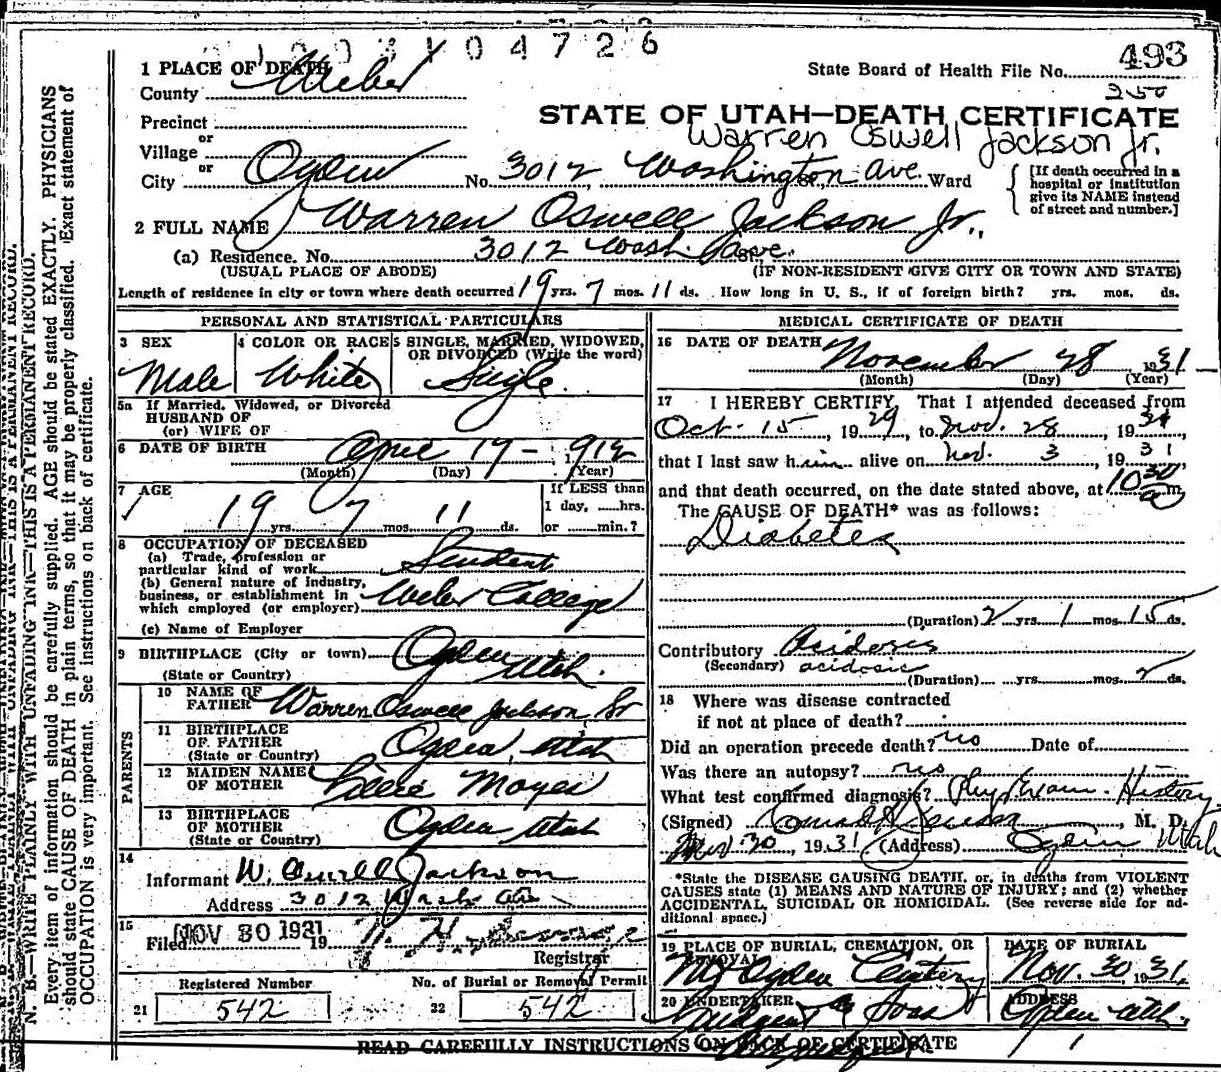 1003104726
493
State Board of Health File No.
250
1 PLACE OF DEATH
County Weber
STATE OF UTAH—DEATH CERTIFICATE
Precinct
Warren Oswell Jackson Jr.
or
Village
or
City Ogden No. 3012 Washington Ave. Ward
[If death occurred in a hospital or institution give its NAME instead of street and number.]
2 FULL NAME Warren Oswell Jackson Jr.,
(a) Residence. No. 3012 Wash. Ave.
(USUAL PLACE OF ABODE) (IF NON-RESIDENT GIVE CITY OR TOWN AND STATE)
Length of residence in city or town where death occurred 19 yrs. 7 mos. 11 ds. How long in U. S., if of foreign birth? yrs. mos. ds.
PERSONAL AND STATISTICAL PARTICULARS
3 SEX Male
4 COLOR OR RACE White
5 SINGLE, MARRIED, WIDOWED, OR DIVORCED (Write the word) Single.
5a If Married, Widowed, or Divorced
HUSBAND OF
(or) WIFE OF
6 DATE OF BIRTH April 17 - 1912
(Month) (Day) (Year)
7 AGE
19 yrs. 7 mos. 11 ds.
If LESS than
1 day, ......hrs.
or ......min.?
8 OCCUPATION OF DECEASED
(a) Trade, profession or
particular kind of work Student
(b) General nature of Industry,
business, or establishment in
which employed (or employer) Weber College
(c) Name of Employer
9 BIRTHPLACE (City or town) Ogden
(State or Country) Utah.
PARENTS
10 NAME OF FATHER Warren Oswell Jackson, Sr
11 BIRTHPLACE OF FATHER Ogden, Utah
(State or Country)
12 MAIDEN NAME OF MOTHER Lillie Moyes
13 BIRTHPLACE OF MOTHER Ogden Utah
(State or Country)
14
Informant W. Oswell Jackson
Address 3012 Wash Ave
15
Filed NOV 30 1931 19
Registrar
Registered Number
21 542
No. of Burial or Removal Permit
22 542
MEDICAL CERTIFICATE OF DEATH
16 DATE OF DEATH November 28 1931
(Month) (Day) (Year)
17 I HEREBY CERTIFY, That I attended deceased from
Oct. 15, 1929, to Nov. 28, 1931,
that I last saw him alive on Nov. 3, 1931,
and that death occurred, on the date stated above, at 10 30 a m.
The CAUSE OF DEATH* was as follows:
Diabetes
(Duration) 2 yrs. 1 mos. 15 ds.
Contributory Acidosis
(Secondary) acidosis
(Duration) yrs. mos. 2 ds.
18 Where was disease contracted
if not at place of death?
Did an operation precede death? no Date of
Was there an autopsy? no
What test confirmed diagnosis? Phys Exam. History
(Signed) Conrad H Jenson, M. D.
Nov 30, 1931 (Address) Ogden Utah
*State the DISEASE CAUSING DEATH, or, in deaths from VIOLENT
CAUSES state (1) MEANS AND NATURE OF INJURY; and (2) whether
ACCIDENTAL, SUICIDAL OR HOMICIDAL. (See reverse side for ad-
ditional space.)
19 PLACE OF BURIAL, CREMATION, OR REMOVAL
Mt Ogden Cemetery
DATE OF BURIAL
Nov. 30, 1931,
20 UNDERTAKER
ADDRESS
Ogden Utah.
READ CAREFULLY INSTRUCTIONS ON BACK OF CERTIFICATE
N. B.—WRITE PLAINLY WITH UNFADING INK—THIS IS A PERMANENT RECORD.
Every item of information should be carefully supplied. AGE should be stated EXACTLY. PHYSICIANS
should state CAUSE OF DEATH in plain terms, so that it may be properly classified. Exact statement of
OCCUPATION is very important. See instructions on back of certificate.